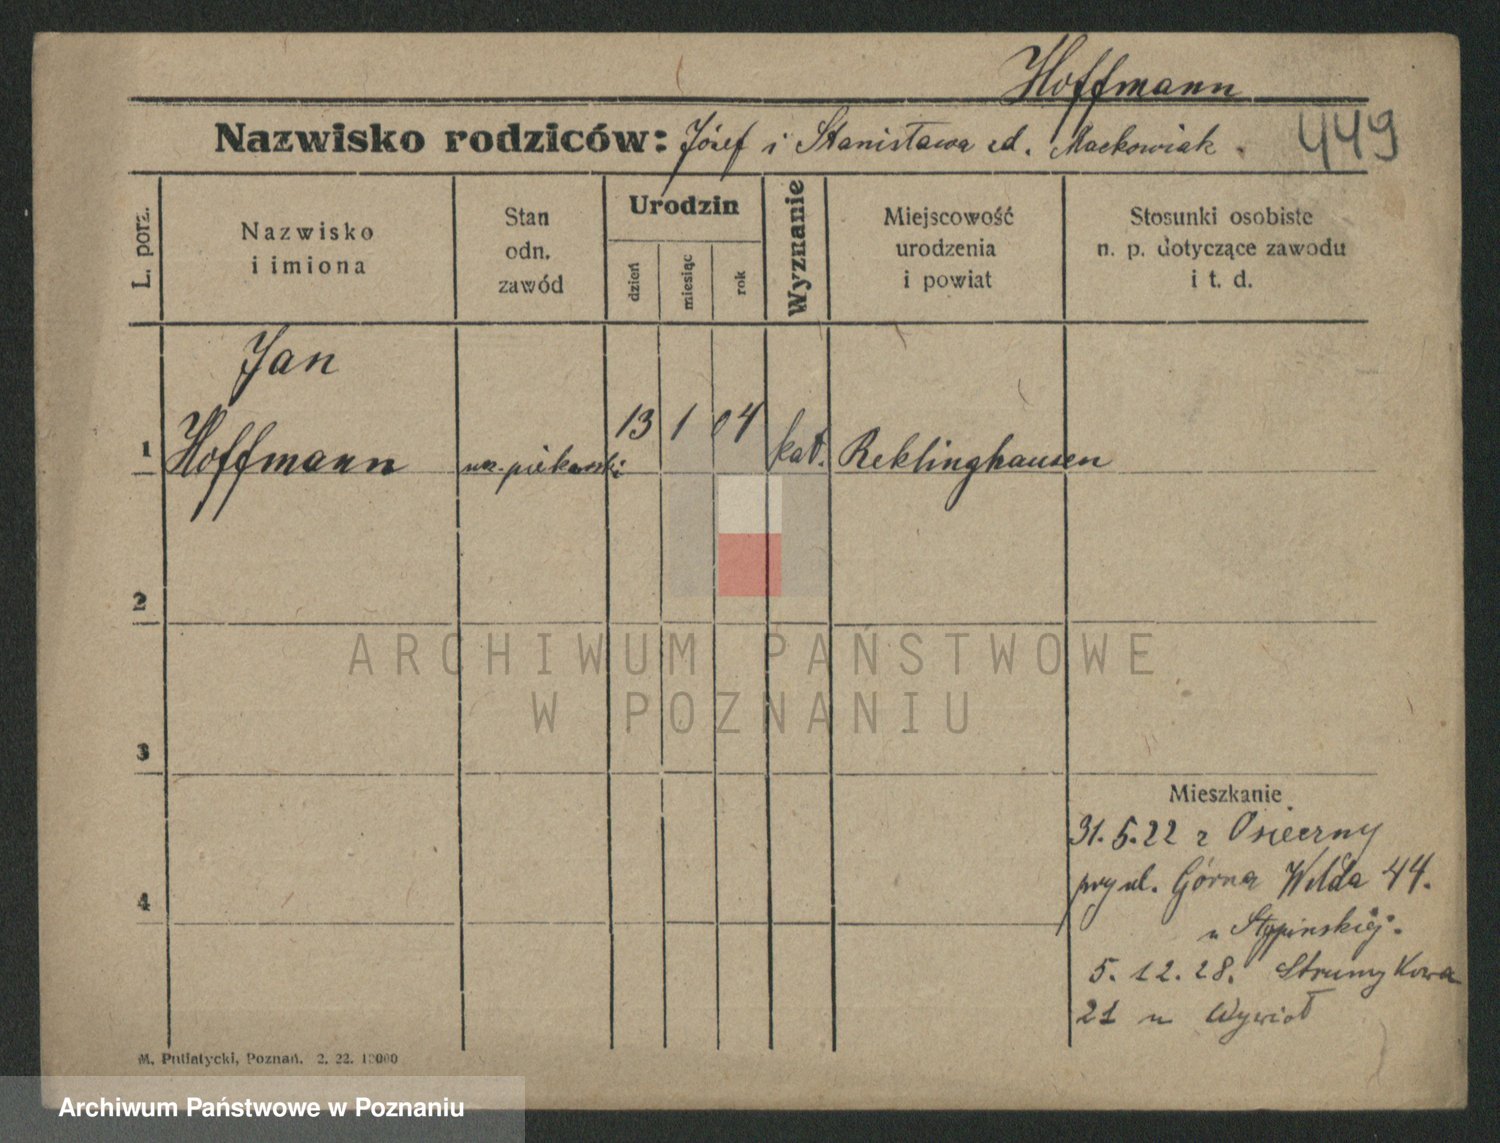 Hoffmann
Nazwisko rodziców: Józef i Stanisława zd. Maćkowiak. 449
L. porz.
Nazwisko
i imiona
Stan
odn.
zawód
Urodzin
dzień
miesiąc
rok
Wyznanie
Miejscowość
urodzenia
i powiat
Stosunki osobiste
n. p. dotyczące zawodu
i t. d.
Jan
1 Hoffmann ucz. piekarski 13 1 04 kat. Reklinghausen
2
3
4
Mieszkanie
31.5.22 z Osieczny
przy ul. Górna Wilda 44.
u Stypinskiej.
5.12.28. Strumykowa
21 u Wywioł
M. Putiatycki, Poznań. 2. 22. 10000
ARCHIWUM PAŃSTWOWE
W POZNANIU
Archiwum Państwowe w Poznaniu